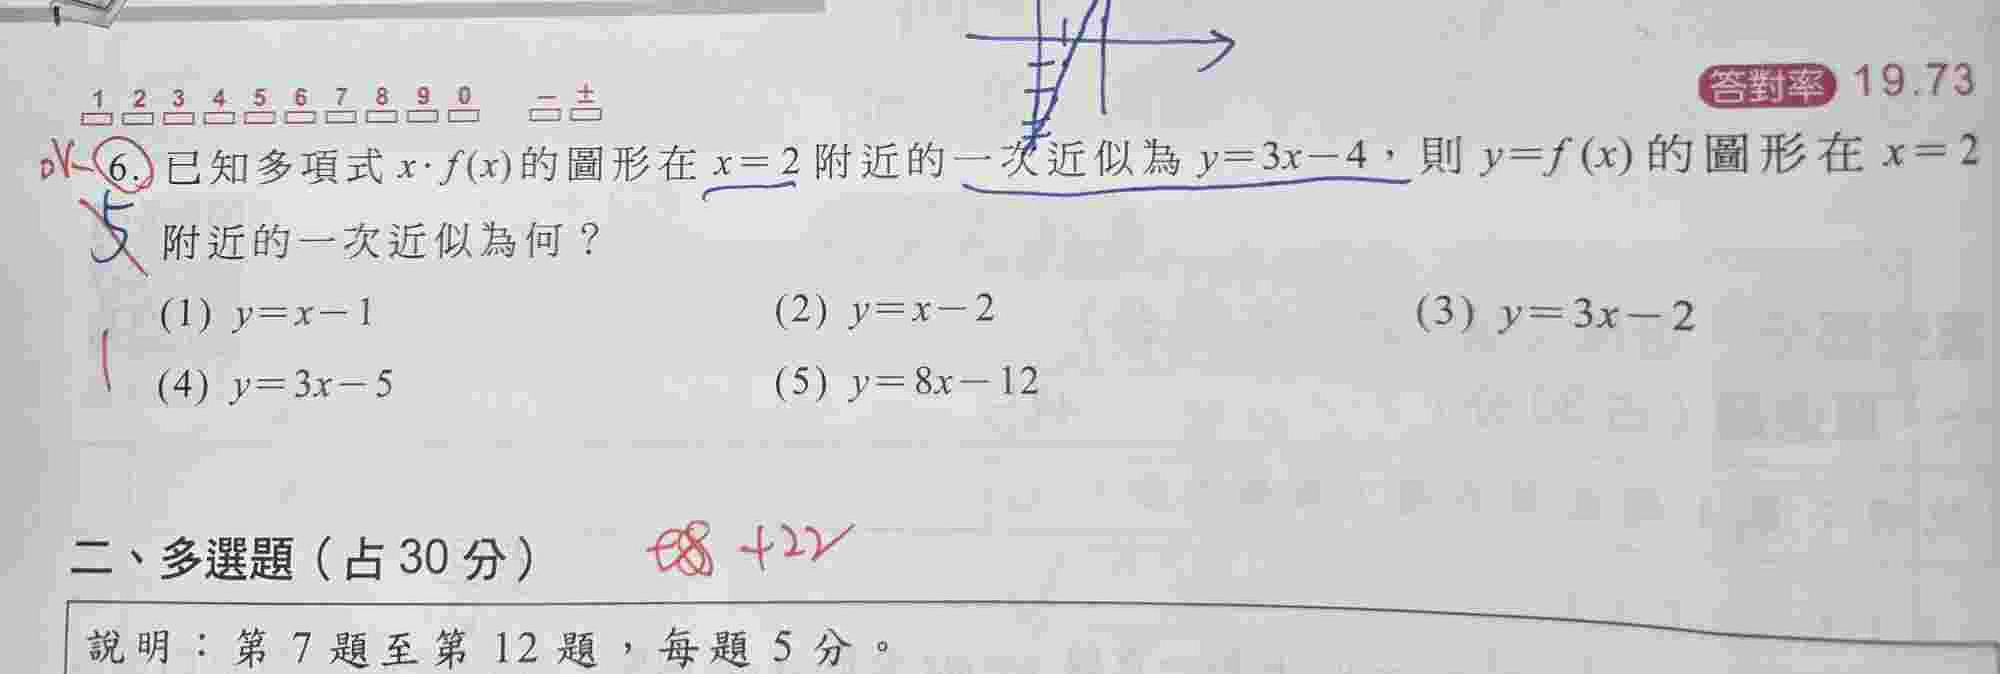 答對率 19.73
1 2 3 4 5 6 7 8 9 0 − ±
6. 已知多項式 x·f(x)的圖形在 x=2 附近的一次近似為 y=3x−4，則 y=f(x)的圖形在 x=2
5
附近的一次近似為何？
(1) y=x−1 (2) y=x−2 (3) y=3x−2
1
(4) y=3x−5 (5) y=8x−12
二、多選題（占 30 分） +22
說明：第 7 題至第 12 題，每題 5 分。